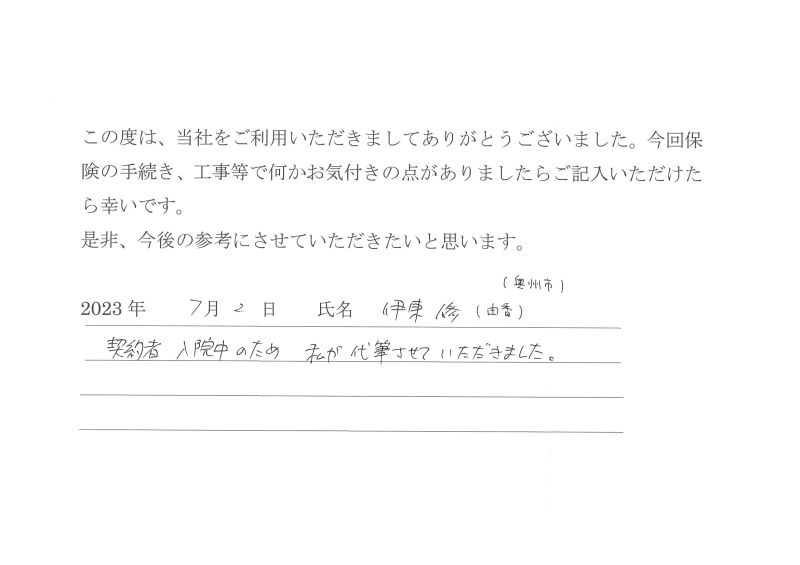 この度は、当社をご利用いただきましてありがとうございました。今回保
険の手続き、工事等で何かお気付きの点がありましたらご記入いただけた
ら幸いです。
是非、今後の参考にさせていただきたいと思います。
(奥州市)
2023 年 7月 2 日 氏名 伊東 修 (由香)
契約者 入院中のため 私が代筆させていただきました。